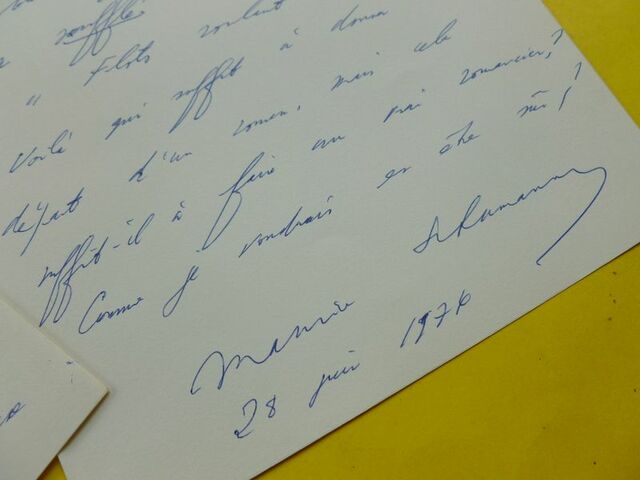 soufflé
" Flots roulant
Voilà qui suffit à donner
départ d'un roman, mais cela
suffit-il à faire un vrai romancier,?
Comme je voudrais en être sûr!
Maurice Schumann
28 juin 1974